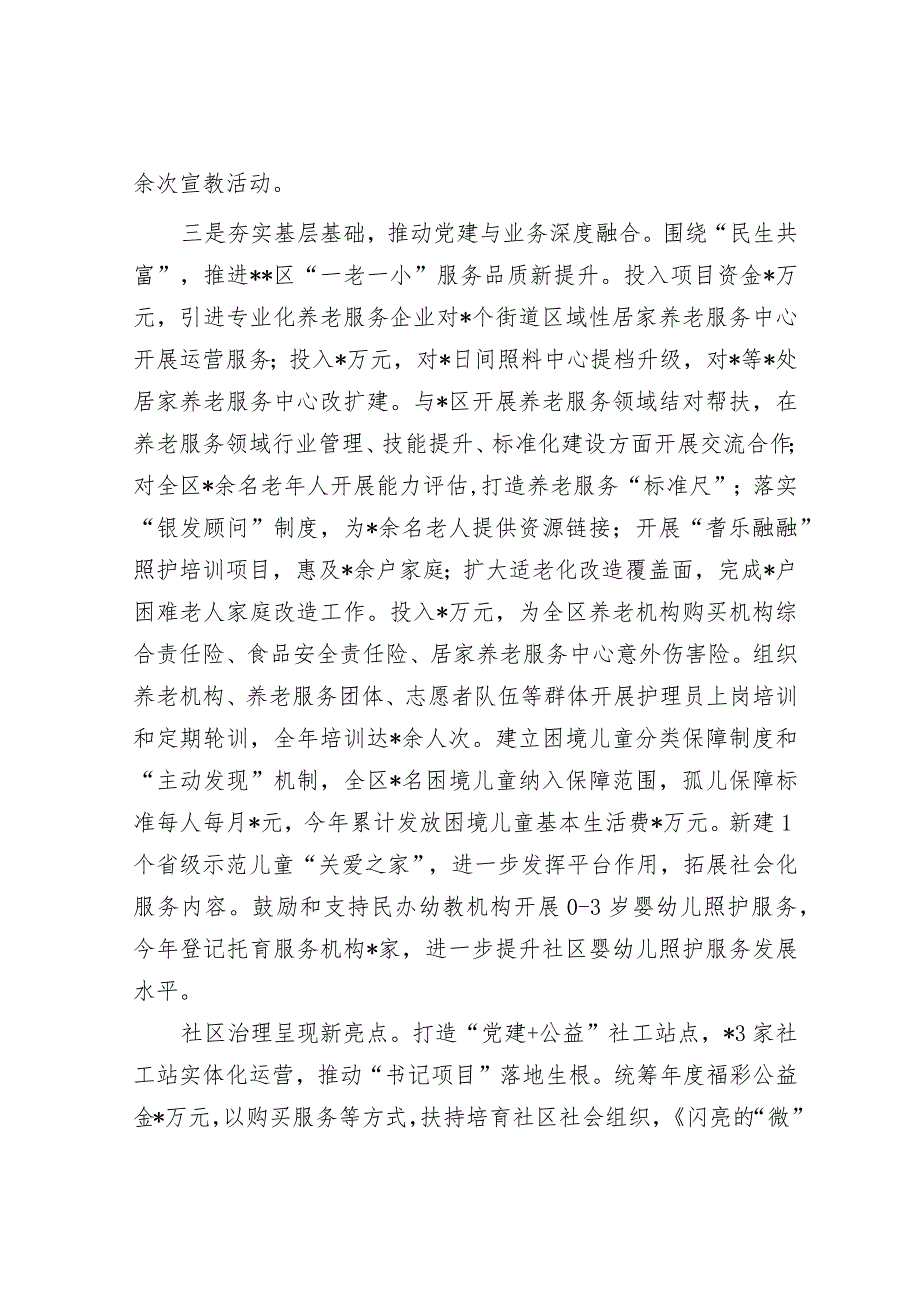 余次宣教活动。
三是夯实基层基础，推动党建与业务深度融合。围绕“民生共
富”，推进**区“一老一小”服务品质新提升。投入项目资金*万
元，引进专业化养老服务企业对*个街道区域性居家养老服务中心
开展运营服务；投入*万元，对*日间照料中心提档升级，对*等*处
居家养老服务中心改扩建。与*区开展养老服务领域结对帮扶，在
养老服务领域行业管理、技能提升、标准化建设方面开展交流合作；
对全区*余名老年人开展能力评估,打造养老服务“标准尺”；落实
“银发顾问”制度，为*余名老人提供资源链接；开展“耆乐融融”
照护培训项目，惠及*余户家庭；扩大适老化改造覆盖面，完成*户
困难老人家庭改造工作。投入*万元，为全区养老机构购买机构综
合责任险、食品安全责任险、居家养老服务中心意外伤害险。组织
养老机构、养老服务团体、志愿者队伍等群体开展护理员上岗培训
和定期轮训，全年培训达*余人次。建立困境儿童分类保障制度和
“主动发现”机制，全区*名困境儿童纳入保障范围，孤儿保障标
准每人每月*元，今年累计发放困境儿童基本生活费*万元。新建1
个省级示范儿童“关爱之家”，进一步发挥平台作用，拓展社会化
服务内容。鼓励和支持民办幼教机构开展0-3岁婴幼儿照护服务，
今年登记托育服务机构*家，进一步提升社区婴幼儿照护服务发展
水平。
社区治理呈现新亮点。打造“党建+公益”社工站点，*3家社
工站实体化运营，推动“书记项目”落地生根。统筹年度福彩公益
金*万元,以购买服务等方式,扶持培育社区社会组织，《闪亮的“微”